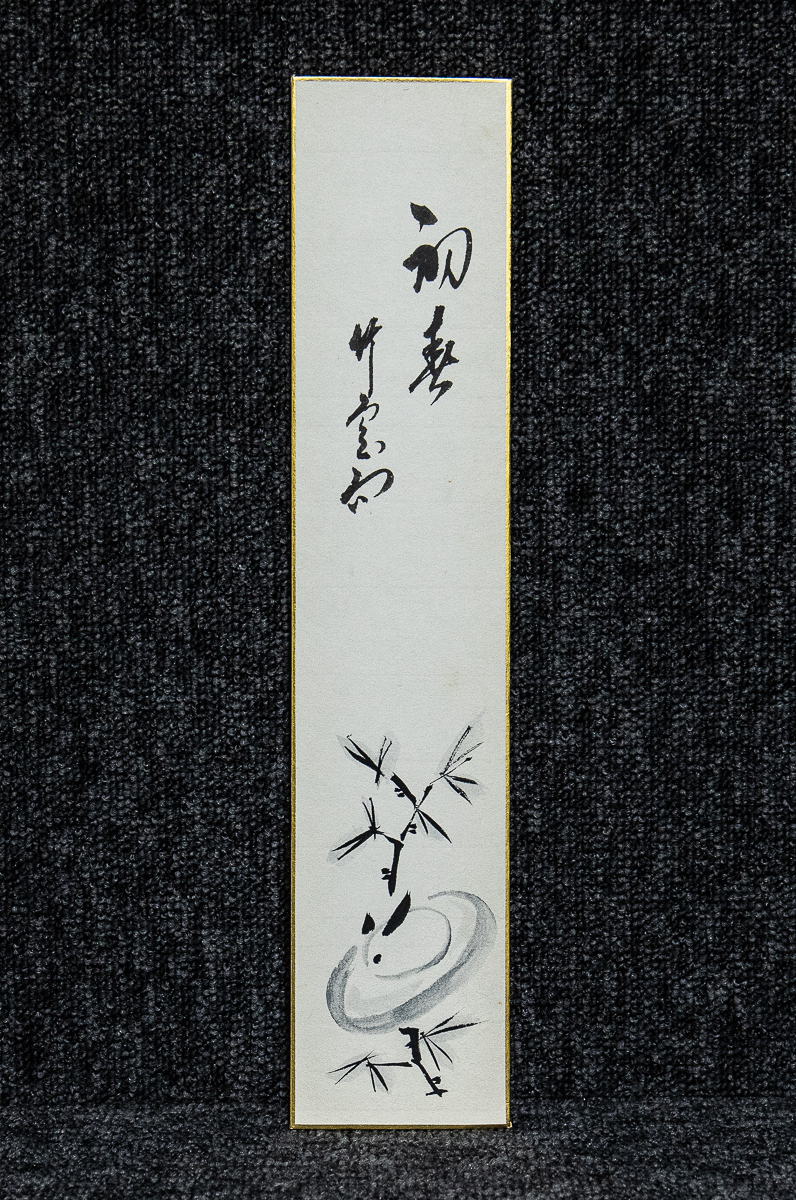 初春
竹窓